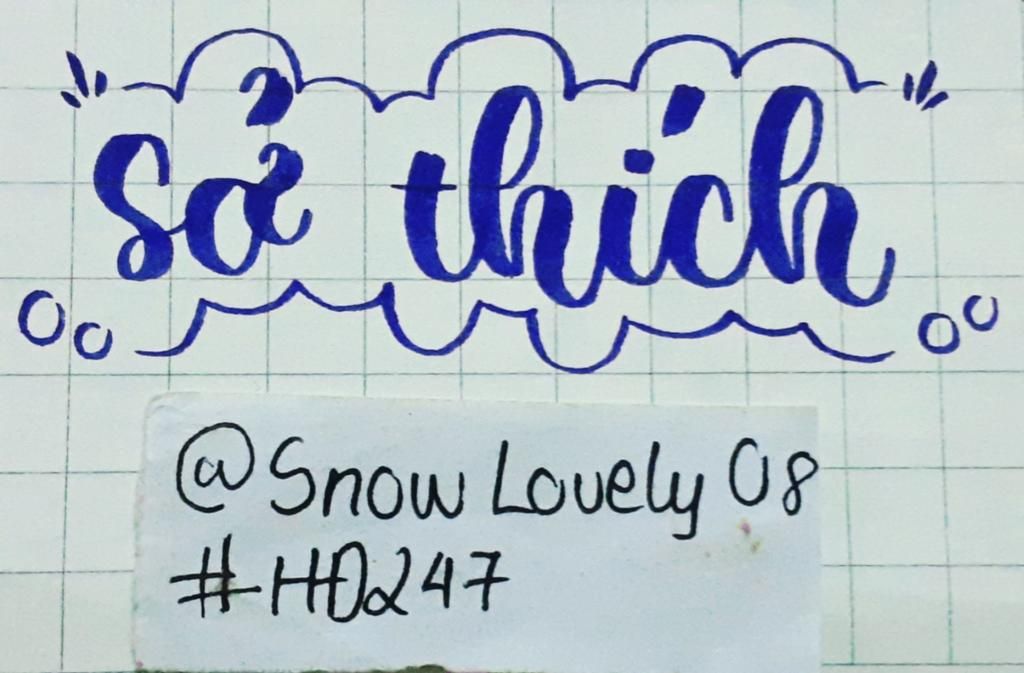 sở thích
@Snow Lovely 08
#HD247